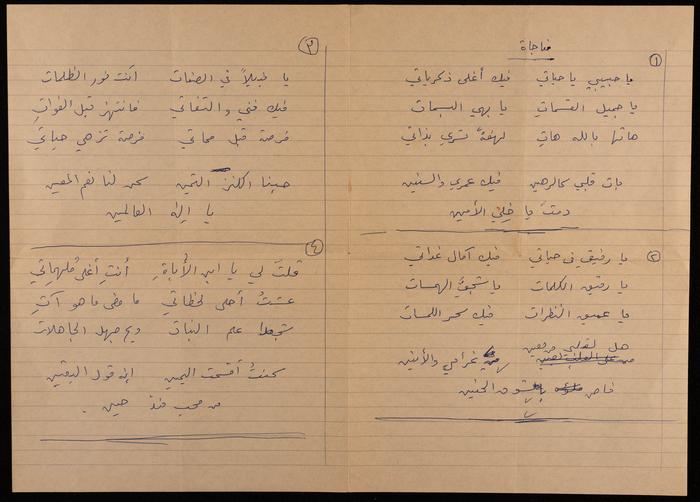 مناجاة
١
يا حبيبي يا حياتي فيك أغلى ذكرياتي
يا جميل القسمات يا بهي البسمات
هاتها بالله هاتِ تسري بذاتي
بات قلبي كالرهين فيك عمري والسنين
دمتَ يا خِلِّي الأمين
٢
يا رفيقي في حياتي فيك آمال غداتي
يا رقيق الكلمات يا شجيَّ الهمسات
يا عميق النظرات فيك سحر اللمسات
هل لقلبي من معين
غرامي والأنين
فاض بالشوق الحنين
٣
يا نبيلاً في الصفات أنت نور الظلمات
فيك فني والتفاتي فانتهز قبل الفواتِ
فرصة قبل مماتي فرصة تزهي حياتي
حبنا الكنز الثمين لنا نعم المعين
يا إله العالمين
٤
قلتَ لي يا ابن الأُباةِ أنتِ أغلى مُلهماتي
عشتُ أحلى لحظاتي ما مضى ما هو آتِ
علم النبات ويح جهل الجاهلات
أقسمت اليمين إنه قول اليقين
من محب منذ حين